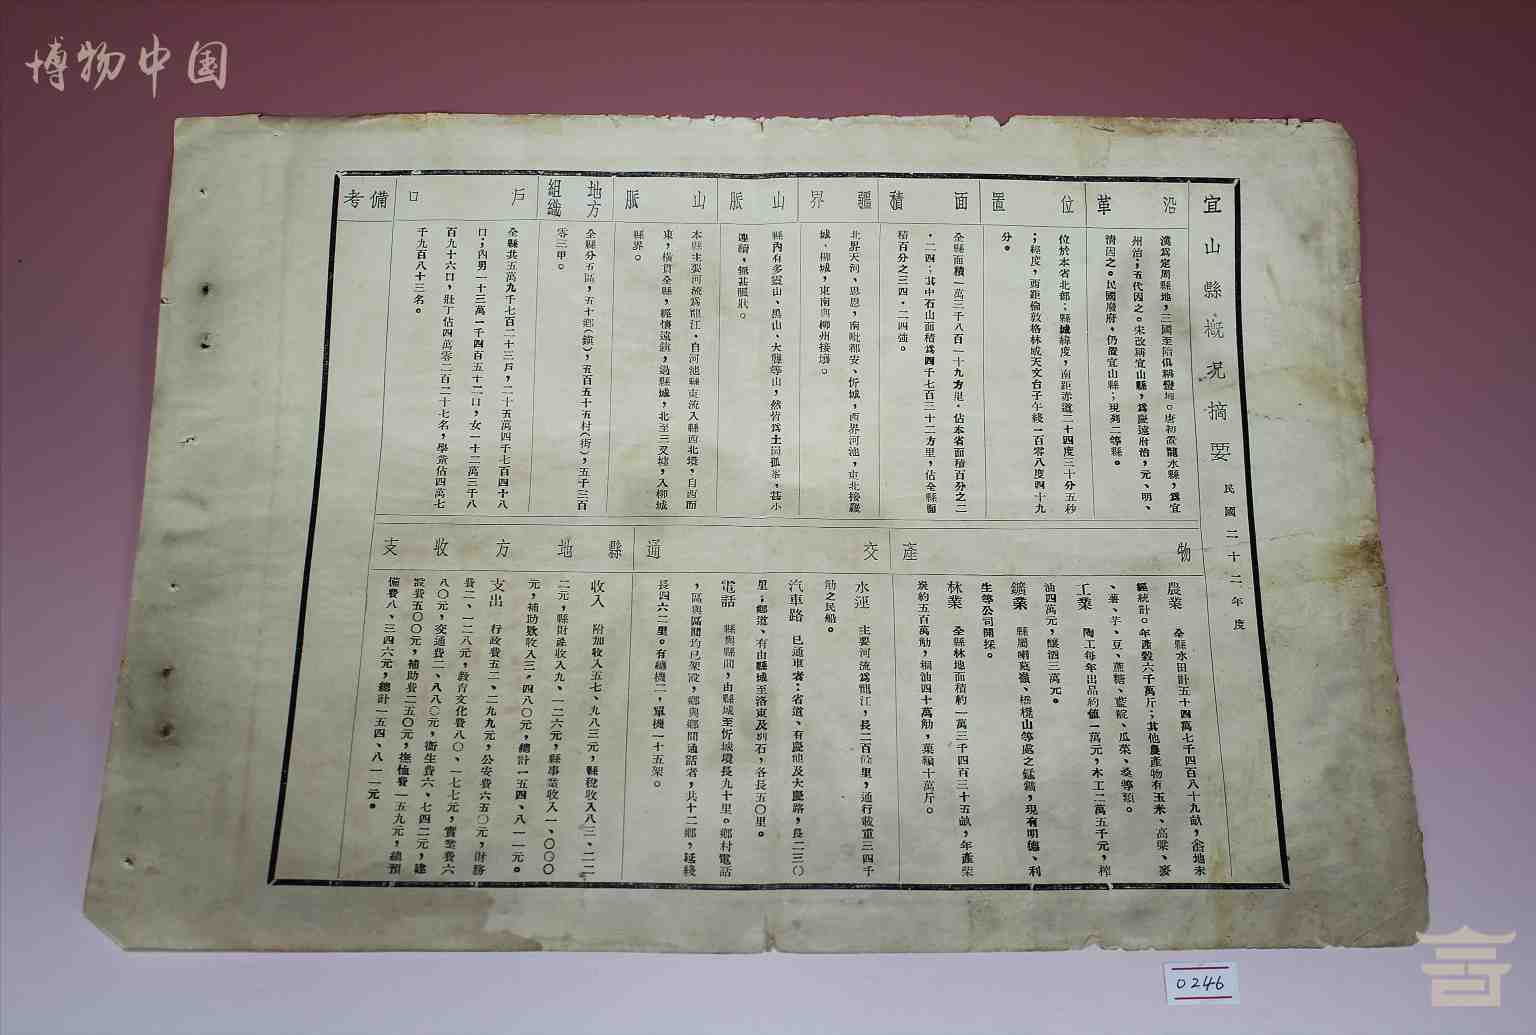 博物中国
宜山縣概况摘要 民國二十二年度
沿革
漢為定周縣地，三國至隋俱稱
唐初置龍水縣，為宜
州治；五代因之。宋改稱宜山縣，為慶遠府治，元、明、
清因之。民國廢府，仍置宜山縣；現列二等縣。
位置
位於本省北部；縣城緯度，南距赤道二十四度三十分五秒
；經度，西距倫敦格林威天文台子午綫一百零八度四十九
分。
面積
全縣面積一萬三千八百一十九方里，佔本省面積百分之二
・二四；其中石山面積為四千七百三十二方里，佔全縣面
積百分之三四・二四強。
疆界
北界天河、思恩，南毗都安、忻城，西界河池，東北接羅
城、柳城，東南與柳州接壤。
山脈
縣內有多靈山、馬山、大號等山，然皆為土岡孤峯，甚小
連續，無甚脈狀。
山脈
本縣主要河流為龍江，自河池縣東流入縣西北境，自西而
東，橫貫全縣，經懷遠鎮，過縣城，北至三叉墟，入柳城
縣界。
地方組織
全縣分五區，五十鄉（鎮），五百五十五村（街），五千三百
零三甲。
戶口
全縣共五萬九千七百二十三戶，二十五萬四千七百四十八
口；內男一十三萬一千四百五十二口，女一十二萬三千八
百九十六口，壯丁佔四萬零二百二十七名，學童佔四萬七
千九百八十三名。
備考
物產
農業 全縣水田計五十四萬七千四百八十九畝，畬地未
經統計。年產穀六千萬斤；其他農產物有玉米、高粱、麥
、薯、芋、豆、蔗糖、藍靛、瓜菜、桑等類。
工業 陶工每年出品約值一萬元，木工二萬五千元，榨
油四萬元，釀酒三萬元。
鑛業 縣屬喇茲嶺、北山等處之錳鑛，現有明德、利
生等公司開採。
林業 全縣林地面積約一萬三千四百三十五畝，年產柴
炭約五百萬觔，桐油四十萬觔，菓類十萬斤。
交通
水運 主要河流為龍江，長二百餘里，通行載重三四千
觔之民船。
汽車路 已通車者：省道、有慶池及大慶路，長二三〇
里；鄉道、有由縣城至洛東及別石，各長五〇里。
電話 縣與縣間，由縣城至忻城境長九十里。鄉村電話
，區與區間均已架設，鄉與鄉間通話者，共十二鄉，延綫
長四六二里。有總機二，單機一十五架。
縣地方收支
收入 附加收入五七、九八三元，縣稅收入八三、二二
二元，縣財產收入九、一二六元，縣事業收入一、〇〇〇
元，補助款收入三、四八〇元，總計一五四、八一一元。
支出 行政費五二、二九九元，公安費六五〇元，財務
費二、一二八元，教育文化費八〇、一七七元，實業費六
八〇元，交通費二、八八〇元，衛生費六、七四二元，建
設費五〇〇元，補助費二五〇元，撫恤費一五九元，總預
備費八、三四六元，總計一五四、八一一元。
0246